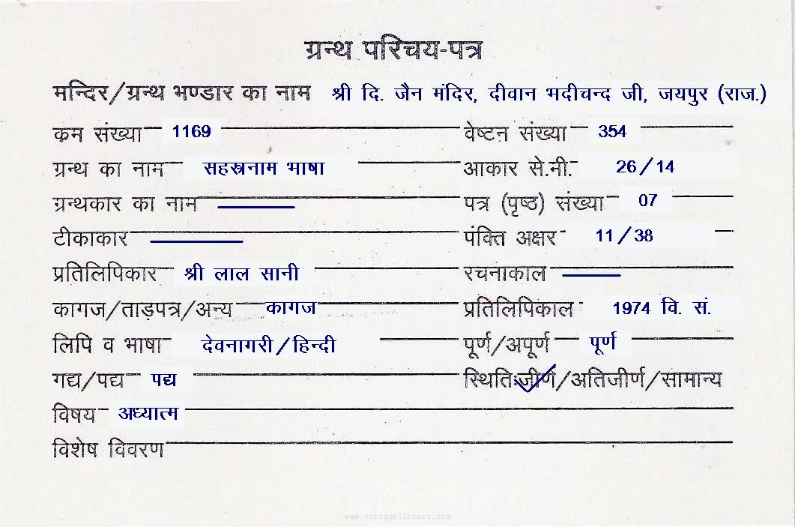 ग्रन्थ परिचय-पत्र
मन्दिर/ग्रन्थ भण्डार का नाम श्री दि. जैन मंदिर, दीवान भदीचन्द जी, जयपुर (राज.)
कम संख्या 1169 वेष्टन संख्या 354
ग्रन्थ का नाम सहस्रनाम भाषा आकार से.मी. 26/14
ग्रन्थकार का नाम — पत्र (पृष्ठ) संख्या 07
टीकाकार — पंक्ति अक्षर 11/38
प्रतिलिपिकार श्री लाल सानी रचनाकाल —
कागज/ताड़पत्र/अन्य कागज प्रतिलिपिकाल 1974 वि. सं.
लिपि व भाषा देवनागरी/हिन्दी पूर्ण/अपूर्ण पूर्ण
गद्य/पद्य पद्य स्थितिः जीर्ण/अतिजीर्ण/सामान्य
विषय अध्यात्म
विशेष विवरण
www.vitragelibrary.com